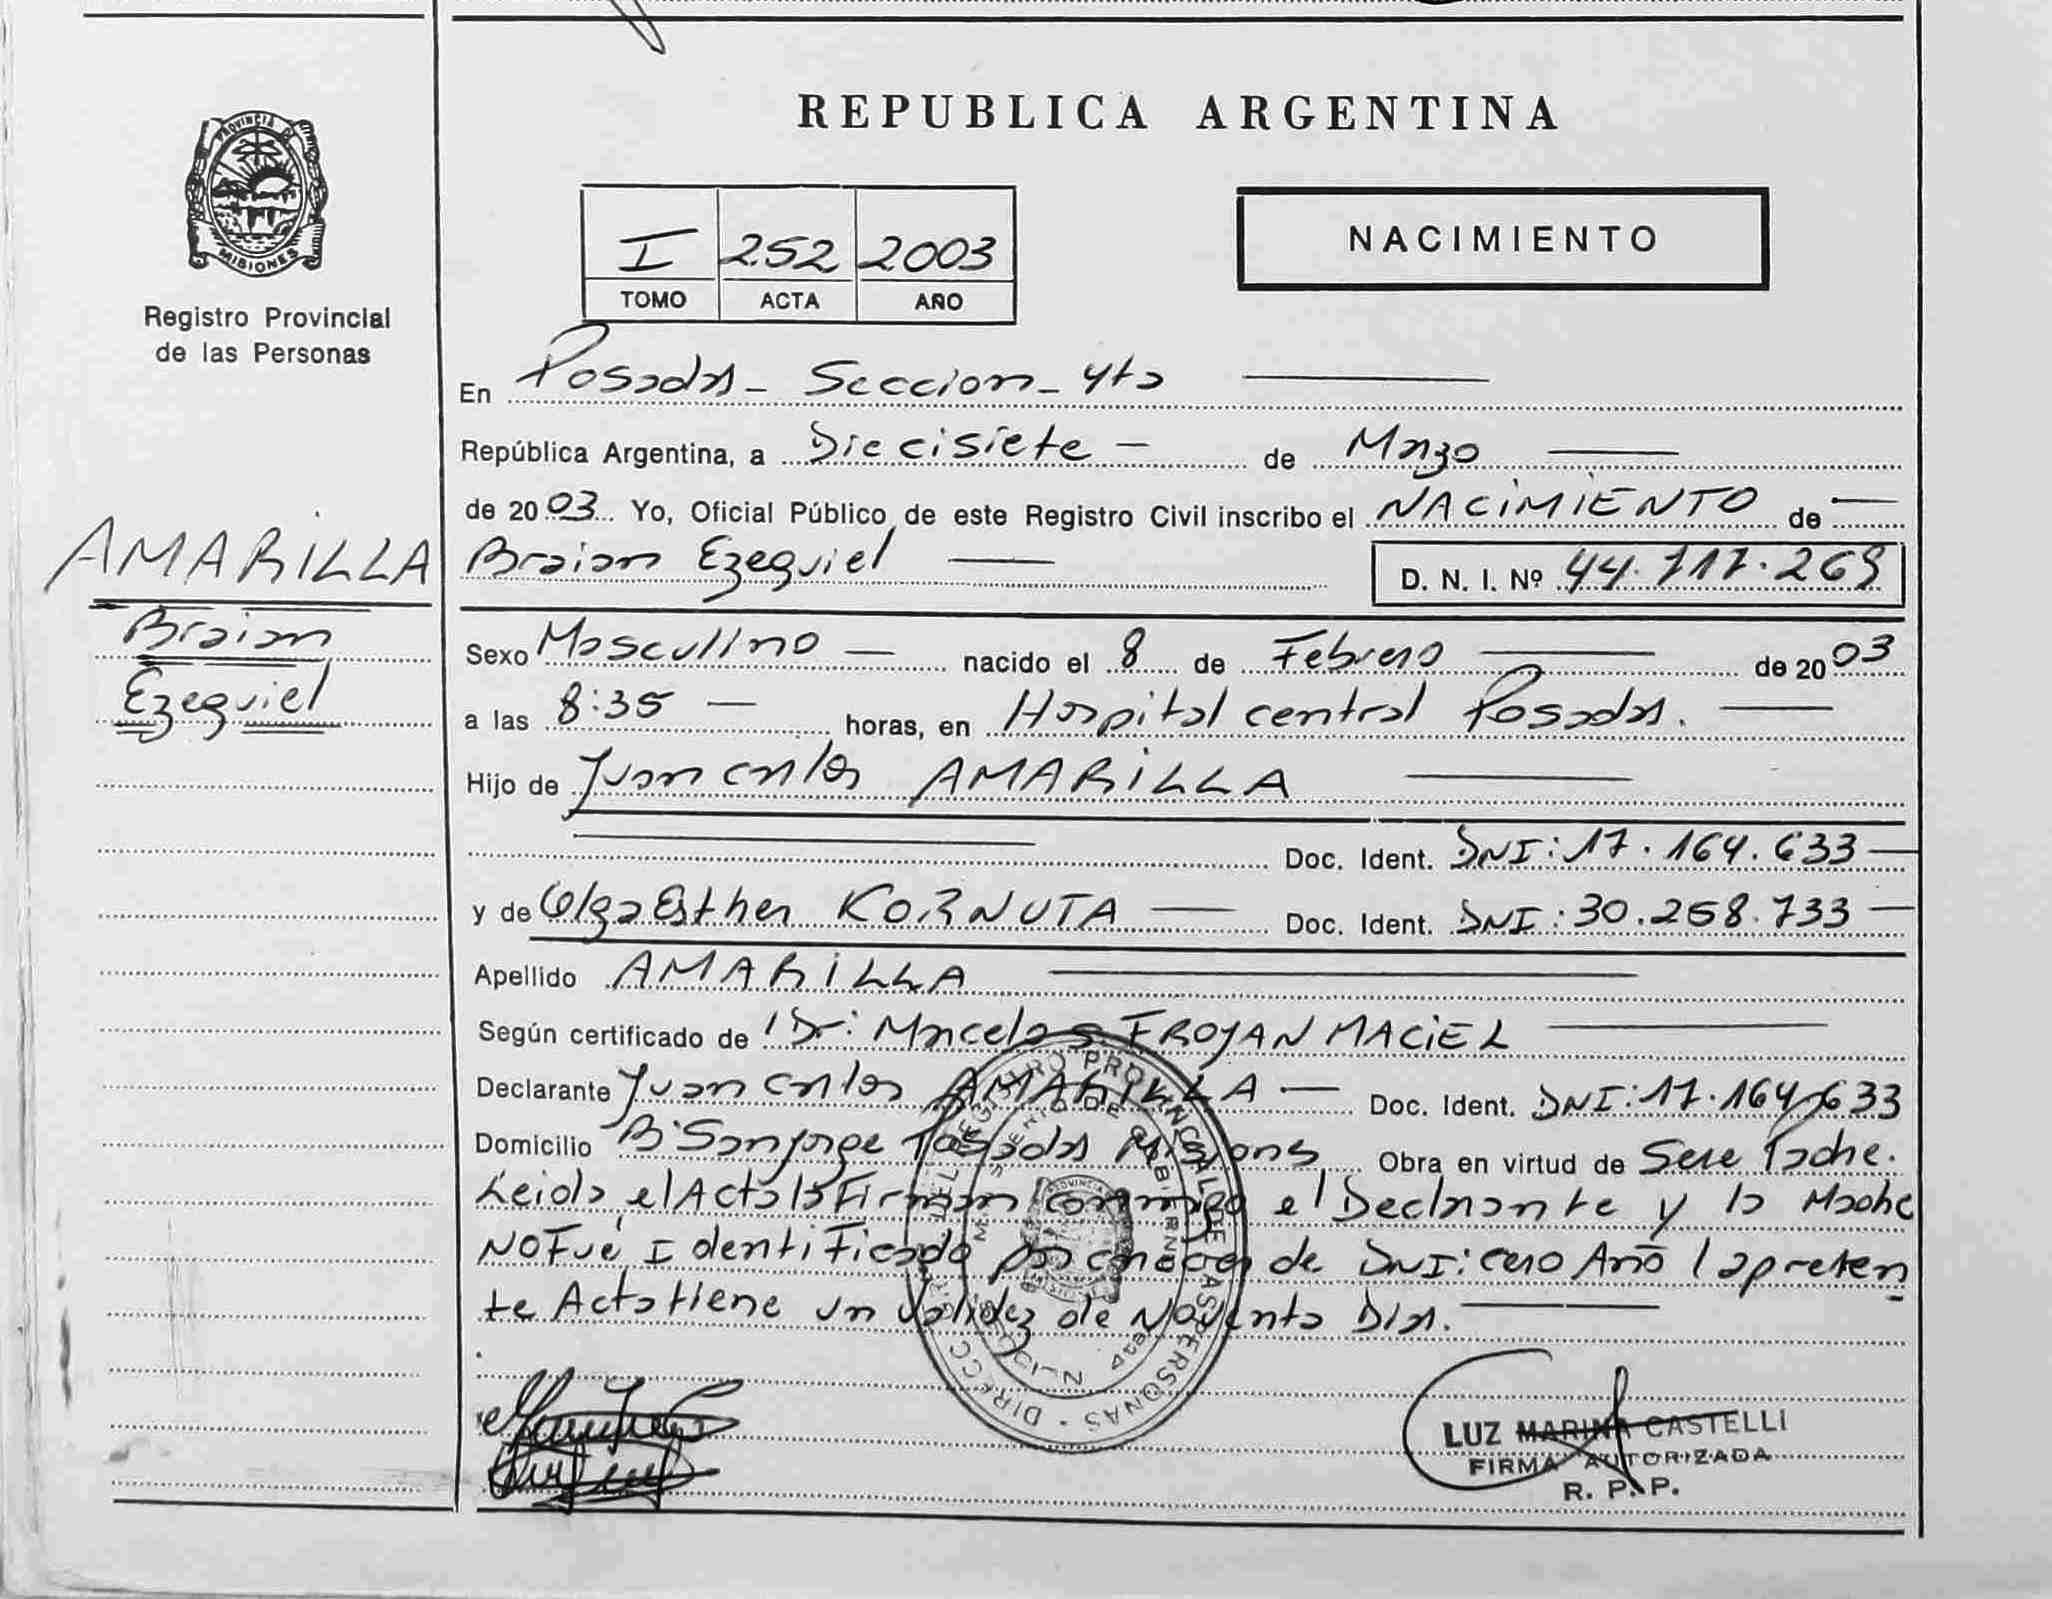 REPUBLICA ARGENTINA
PROVINCIA DE
MISIONES
Registro Provincial
de las Personas
I 252 2003
TOMO ACTA AÑO
NACIMIENTO
En Posadas - Seccion - 4ta
República Argentina, a Diecisiete - de Marzo
de 2003 Yo, Oficial Público de este Registro Civil inscribo el NACIMIENTO de
AMARILLA
Braian
Ezequiel
Braian Ezequiel D. N. I. Nº 44.717.269
Sexo Masculino nacido el 8 de Febrero de 2003
a las 8:35 horas, en Hospital central Posadas.
Hijo de Juan Carlos AMARILLA
Doc. Ident. DNI: 17.164.633
y de Olga Esther KORNUTA Doc. Ident. DNI: 30.258.733
Apellido AMARILLA
Según certificado de Dr: Marcelo S. FROYAN MACIEL
Declarante Juan Carlos AMARILLA Doc. Ident. DNI: 17.164.633
Domicilio Bº San Jorge Posadas Misions Obra en virtud de Sere Padre.
Leida el Acta la Firman conmigo el Declarante y la Madre
NO Fué Identificado por carecer de DNI: cero Año la presen
te Acta tiene un validez de Noventa Dias.
DIRECC GRAL DEL REGISTRO PROVINCIAL DE LAS PERSONAS
LUZ MARINA CASTELLI
FIRMA AUTORIZADA
R. P. P.